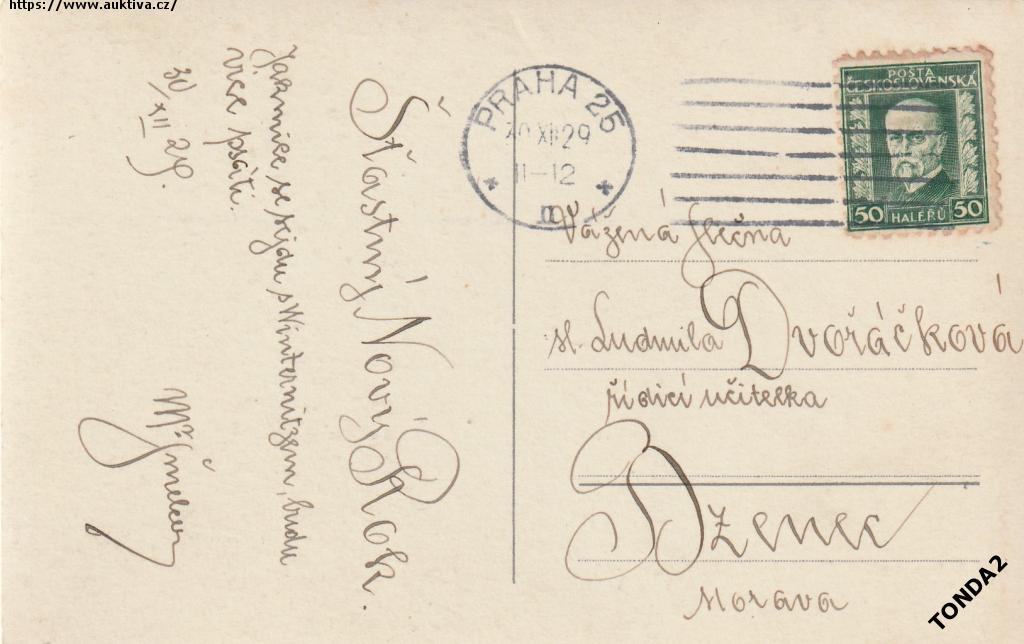 https://www.auktiva.cz/
Šťastný Nový Rok.
Jakmile se sejdu s Winternitzem, budu
více psáti.
30/XII 29.
PRAHA 25
30 XII 29
11-12
POŠTA
ČESKOSLOVENSKÁ
50 HALÉŘŮ 50
Vážená slečna
sl. Ludmila Dvořáčková
řídící učitelka
Bzenec
Morava
TONDA2